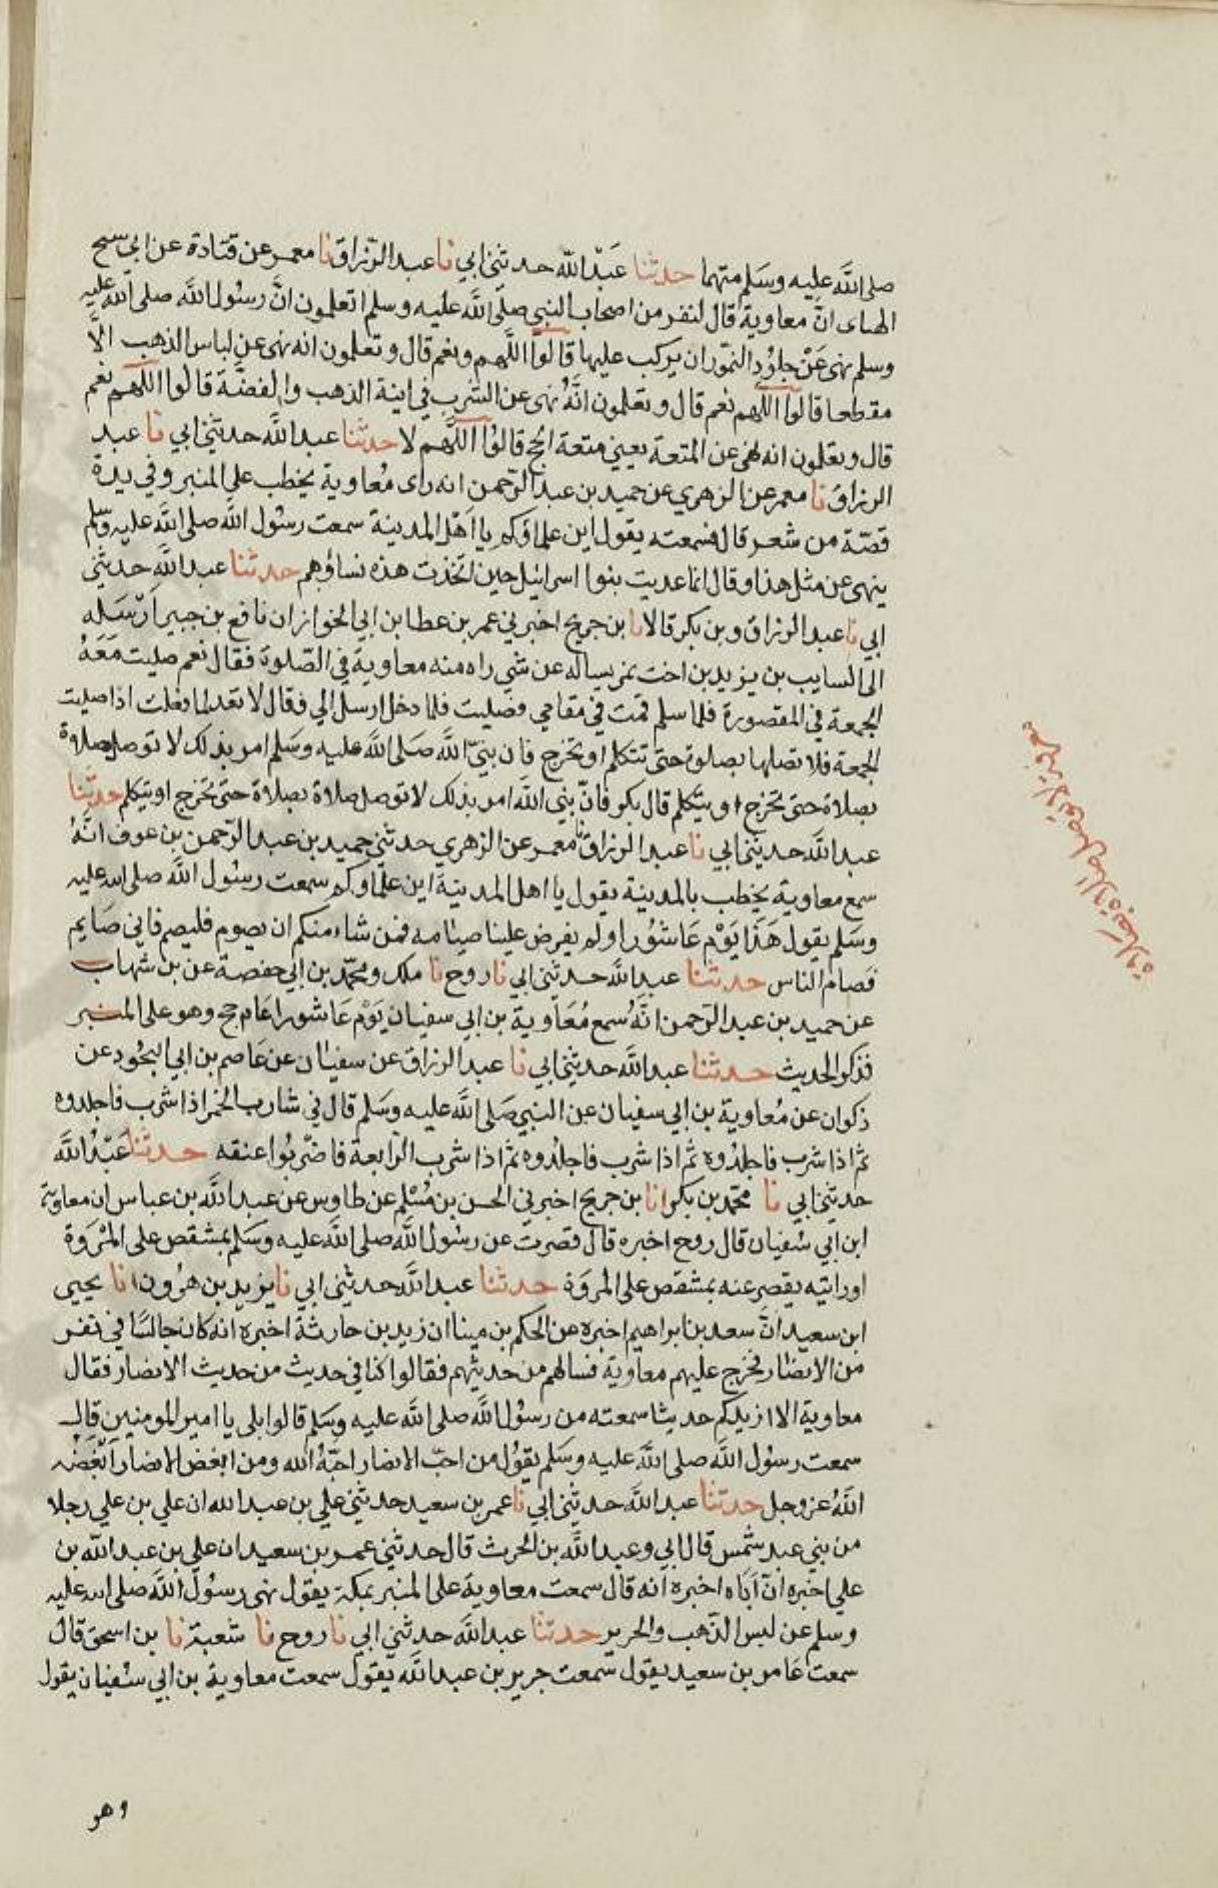 صلى الله عليه وسلم متهما حدثنا عبد الله حدثني ابي نا عبد الرزاق نا معمر عن قتادة عن ابي شيح
الهناى ان معاوية قال لنفر من اصحاب النبي صلى الله عليه وسلم اتعلمون ان رسول الله صلى الله عليه
وسلم نهى عن جلود النمور ان يركب عليها قالوا اللهم ونعم قال وتعلمون انه نهى عن لباس الذهب الا
مقطعا قالوا اللهم نعم قال وتعلمون انه نهى عن الشرب في انية الذهب والفضة قالوا اللهم نعم
قال وتعلمون انه نهى عن المتعة يعني متعة الحج قالوا اللهم لا حدثنا عبد الله حدثني ابي نا عبد
الرزاق نا معمر عن الزهري عن حميد بن عبد الرحمن انه راى معاوية يخطب على المنبر وفي يدة
قصة من شعر قال فسمعته يقول اين علماؤكم يا اهل المدينة سمعت رسول الله صلى الله عليه وسلم
ينهى عن مثل هذا وقال انما عذبت بنوا اسرائيل حين اتخذت هذه نساؤهم حدثنا عبد الله حدثني
ابي نا عبد الرزاق وبن بكر قالا نا بن جريج اخبرني عمر بن عطا بن ابي الخواز ان نافع بن جبير ارسله
الى السايب بن يزيد بن اخت نمر يساله عن شي راه منه معاوية في الصلوة فقال نعم صليت معه
الجمعة في المقصورة فلما سلم قمت في مقامي وصليت فلما دخل ارسل الي فقال لا تعد لما فعلت اذا صليت
الجمعة فلا تصلها بصلوة حتى تتكلم او تخرج فان نبي الله صلى الله عليه وسلم امر بذلك لا توصل صلاة
بصلاة حتى تخرج او يتكلم قال بكر فان نبي الله امر بذلك لا توصل صلاة بصلاة حتى تخرج او يتكلم حدثنا
عبد الله حدثني ابي نا عبد الرزاق نا معمر عن الزهري حدثني حميد بن عبد الرحمن بن عوف انه
سمع معاوية يخطب بالمدينة يقول يا اهل المدينة اين علماوكم سمعت رسول الله صلى الله عليه
وسلم يقول هذا يوم عاشورا ولم يفرض علينا صيامه فمن شاء منكم ان يصوم فليصم فاني صايم
فصام الناس حدثنا عبد الله حدثني ابي نا روح نا ملك ومحمد بن ابي حفصة عن بن شهاب
عن حميد بن عبد الرحمن انه سمع معاوية بن ابي سفيان يوم عاشورا عام حج وهو على المنبر
فذكر الحديث حدثنا عبد الله حدثني ابي نا عبد الرزاق عن سفيان عن عاصم بن ابي النجود عن
ذكوان عن معاوية بن ابي سفيان عن النبي صلى الله عليه وسلم قال في شارب الخمر اذا شرب فاجلدوه
ثم اذا شرب فاجلدوه ثم اذا شرب فاجلدوه ثم اذا شرب الرابعة فاضربوا عنقه حدثنا عبد الله
حدثني ابي نا محمد بن بكر انا بن جريج اخبرني الحسن بن مسلم عن طاوس عن عبد الله بن عباس ان معاوية
ابن ابي سفيان قال روح اخبره قال قصرت عن رسول الله صلى الله عليه وسلم بمشقص على المروة
او رايته يقصر عنه بمشقص على المروة حدثنا عبد الله حدثني ابي نا يزيد بن هرون انا يحيى
ابن سعيد ان سعد بن ابراهيم اخبره عن الحكم بن مينا ان زيد بن حارثة اخبره انه كان جالسا في نفر
من الانصار فخرج عليهم معاوية فسالهم من حديثهم فقالوا كنا في حديث من حديث الانصار فقال
معاوية الا ازيدكم حديثا سمعته من رسول الله صلى الله عليه وسلم قالوا بلى يا امير المومنين قال
سمعت رسول الله صلى الله عليه وسلم يقول من احب الانصار احبه الله ومن ابغض الانصار ابغضه
الله عز وجل حدثنا عبد الله حدثني ابي نا عمر بن سعيد حدثني علي بن عبد الله ان علي بن علي رجلا
من بني عبد شمس قال ابي وعبد الله بن الحرث قال حدثني عمر بن سعيد ان علي بن عبد الله بن
علي اخبره ان اباه اخبره انه قال سمعت معاوية على المنبر بمكة يقول نهى رسول الله صلى الله عليه
وسلم عن لبس الذهب والحرير حدثنا عبد الله حدثني ابي نا روح نا شعبة نا بن اسحق قال
سمعت عامر بن سعيد يقول سمعت جرير بن عبد الله يقول سمعت معاوية بن ابي سفيان يقول
وهو
لا توصل صلاة بصلاة